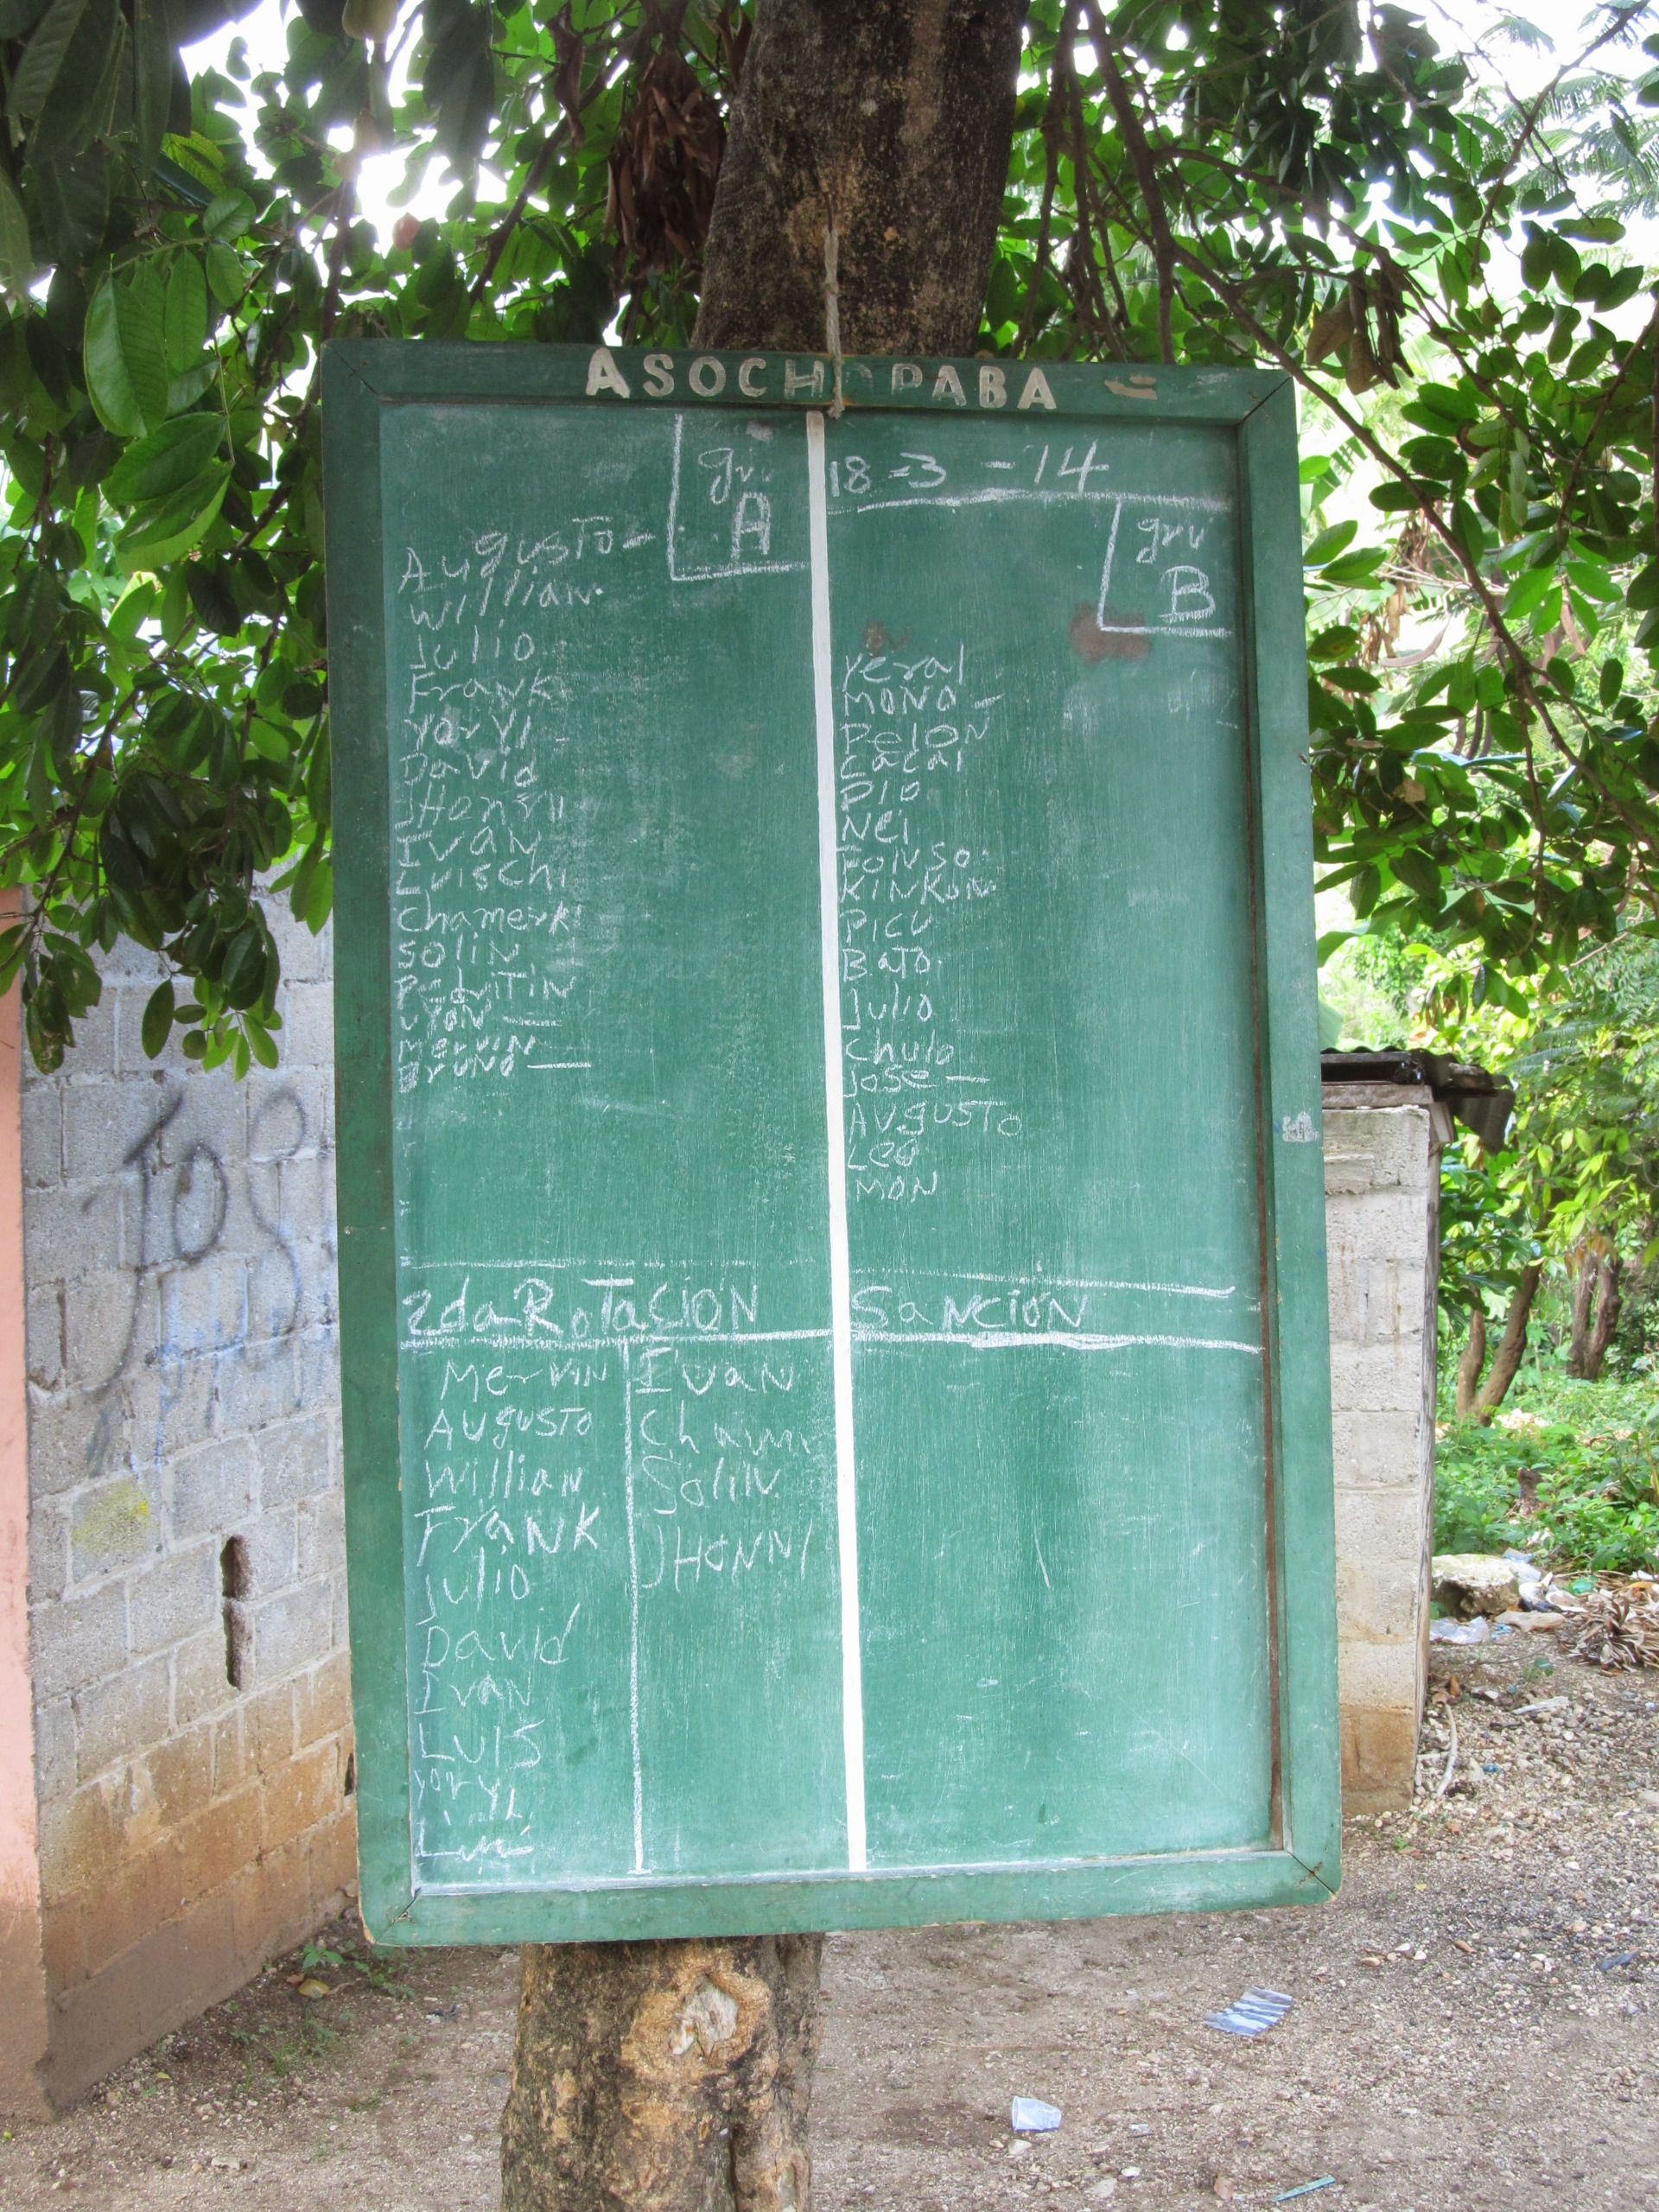 ASOCHOPABA
gru
A
Augusto-
Willian.
Julio
Frank
Yoryi -
David
JHonni
Ivan
Luischi
Chamerki
Solin
Mervin
Bruno
18-3-14
gru
B
Yeral
MONO -
Pelon
Cacai
Pio
Nei
Fonso.
KINKON
PICU
Bato.
Julio
Chulo
Jose -
Augusto
Leo
MON
2da Rotación
Mervin
Augusto
Willian
Frank
Julio
David
Ivan
Luis
Yoryi
Ivan
Solin
JHONNI
Sanción
Jos